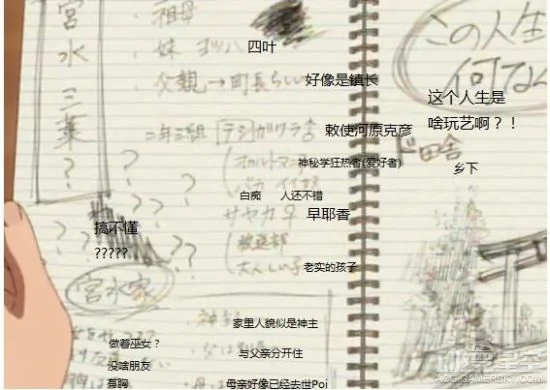 宮水三葉?
・祖母
・妹 ヨツハ
四叶
・父親→町長らしい
好像是镇长
この人生
何な
这个人生是
啥玩艺啊?!
二年三組 テシガワラ♂
敕使河原克彦
ド田舎
乡下
(オカルトマニア
神秘学狂热者(爱好者)
バカ
白痴 人还不错
サヤカ♀
早耶香
搞不懂
?????
(放送部
大人しい子
老实的孩子
宮水家
家里人貌似是神主
做着巫女?
与父亲分开住
没啥朋友
有胸
母亲好像已经去世Poi
动漫星空
ACG.GAMERSKY.COM